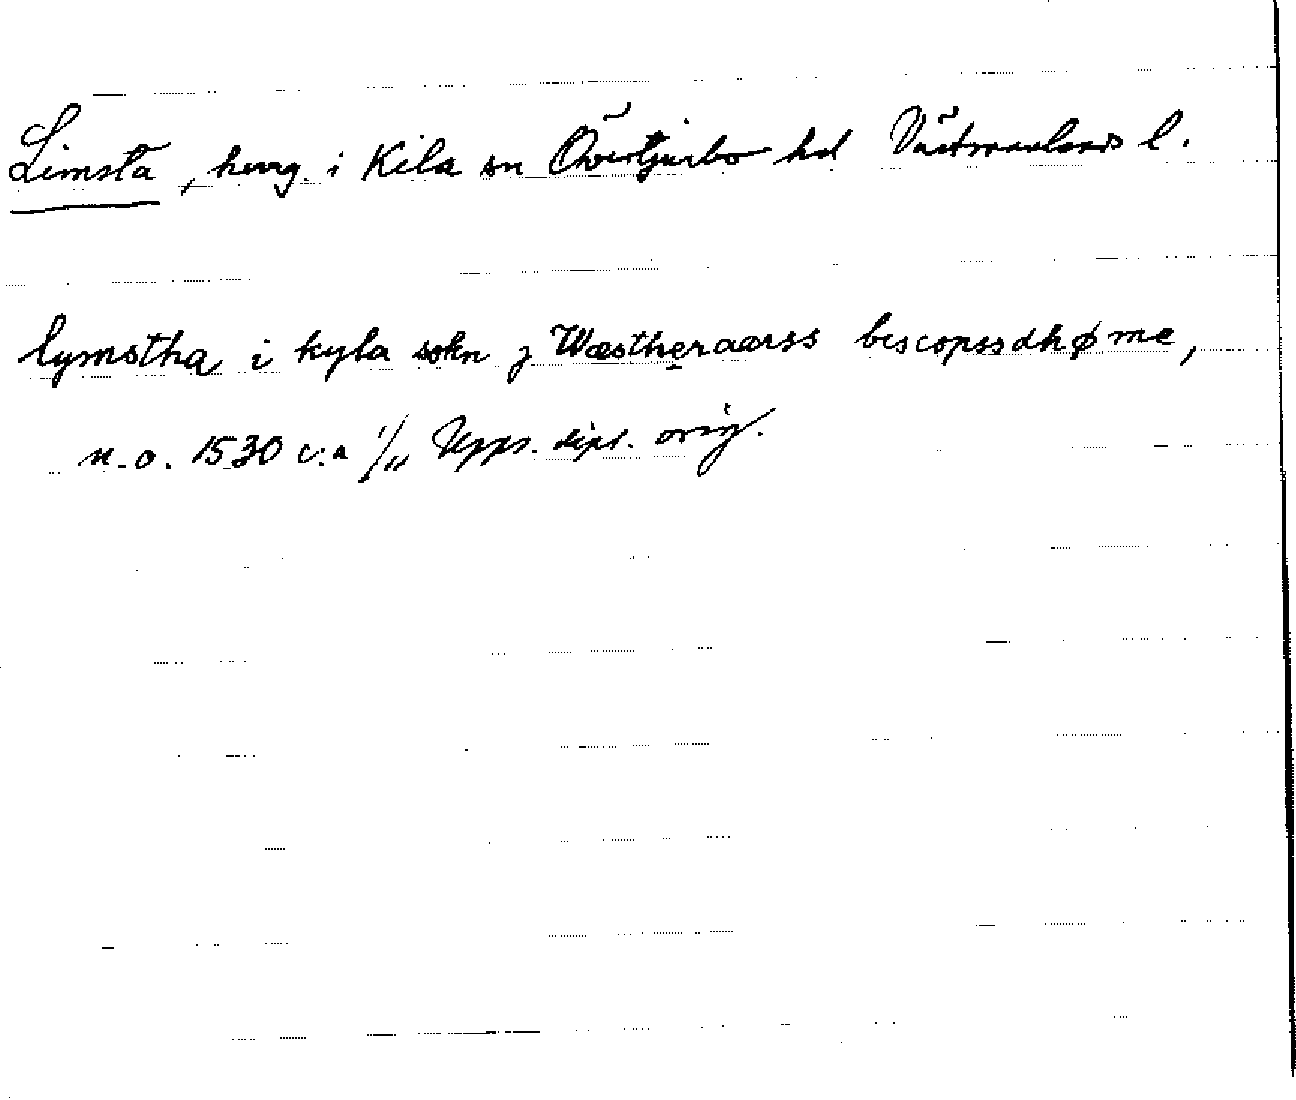 Limsta, herrg. i Kila sn Övertjurbo hd Västmanlands l.
lymstha i kyla sokn j Wæstheraarss biscopssdhøme,
u.o. 1530 c:a 1/11 Upps. dipl. orig.